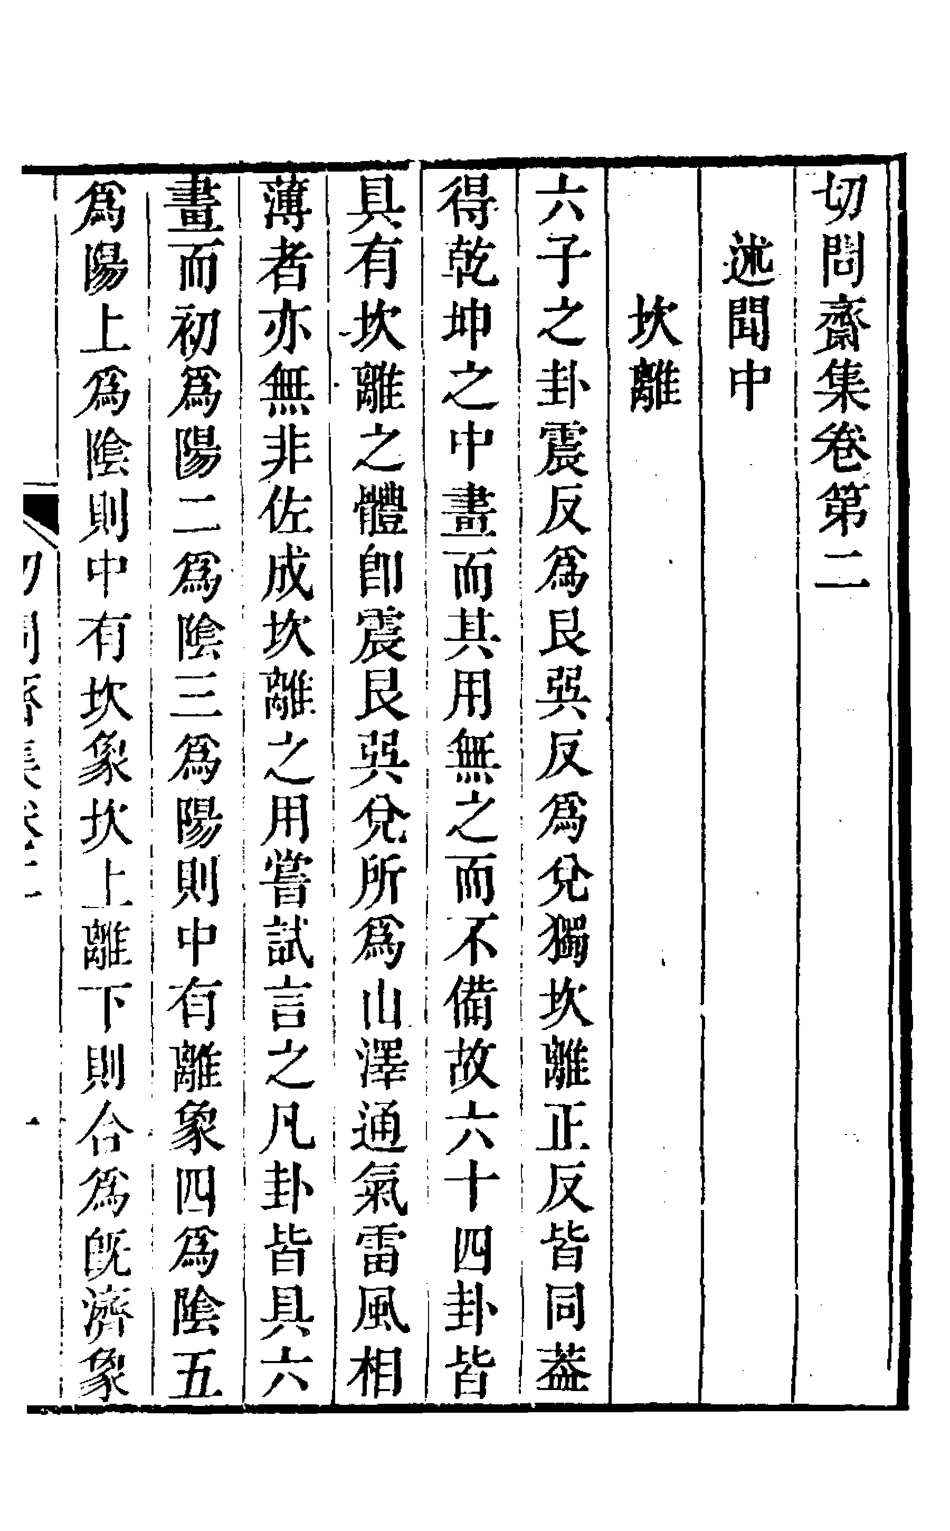 切問齋集卷第二
述聞中
坎離
六子之卦震反爲艮巽反爲兌獨坎離正反皆同葢
得乾坤之中畫而其用無之而不備故六十四卦皆
具有坎離之體卽震艮巽兌所爲山澤通氣雷風相
薄者亦無非佐成坎離之用嘗試言之凡卦皆具六
畫而初爲陽二爲陰三爲陽則中有離象四爲陰五
爲陽上爲陰則中有坎象坎上離下則合爲旣濟象
切問齋集卷二
一